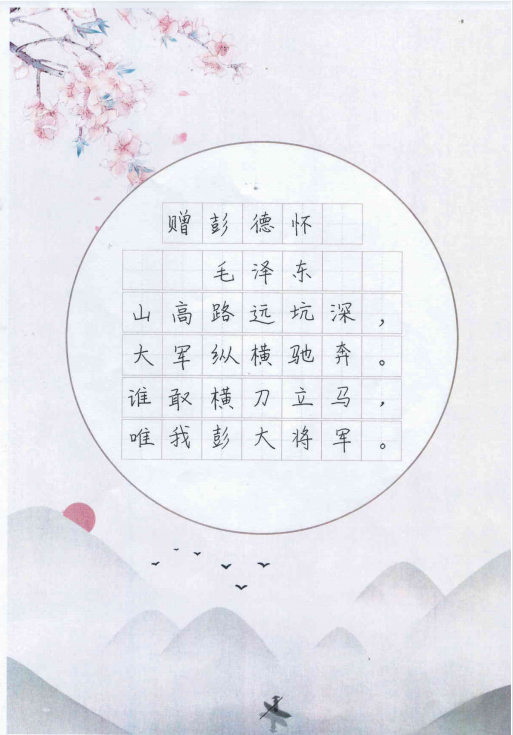 赠彭德怀
毛泽东
山高路远坑深，
大军纵横驰奔。
谁敢横刀立马，
唯我彭大将军。